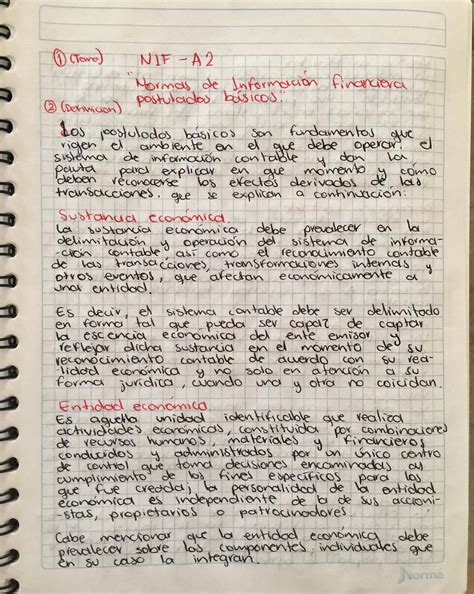 ① (Tomo) NIF - A2
"Normas de Información Financiera
② (Definicion) postulados básicos".
Los postulados básicos son fundamentos que
rigen el ambiente en el que debe operar el
sistema de información contable y dan la
pauta para explicar en que momento y cómo
deben reconocerse los efectos derivados de las
transacciones. que se explican a continuación:
Sustancia económica.
La sustancia económica debe prevalecer en la
delimitación y operación del sistema de informa-
-ción contable, así como el reconocimiento contable
de las transacciones, transformaciones internas y
otros eventos, que afectan económicamente a
una entidad.
Es decir, el sistema contable debe ser delimitado
en forma tal que pueda ser capaz de captar
la escencia económica del ente emisor y
reflejar dicha sustancia en el momento de su
reconocimiento contable de acuerdo con su rea-
-lidad económica y no solo en atención a su
forma jurídica, cuando una y otra no coicidan.
Entidad económica.
Es aquella unidad identificable que realiza
actividades económicas, constituida por combinaciones
de recursos humanos, materiales y financieros
conducidos y administrados por un único centro
de control que toma decisiones encaminadas al
cumplimiento de los fines específicos para los
que fue creada; la personalidad de la entidad
económica es independiente de la de sus accioni-
-stas, propietarios o patrocinadores.
Cabe mencionar que la entidad económica debe
prevalecer sobre los componentes individuales que
en su caso la integran.
Norma